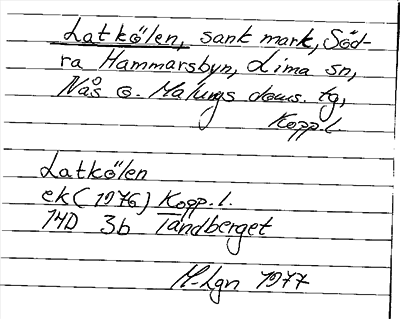 Latkölen, sank mark, Söd-
ra Hammarsbyn, Lima sn,
Nås o. Malungs doms. tg,
Kopp.l.
Latkölen
ek (1976) Kopp.l.
14D 3b Tandberget
M-Lgn 1977